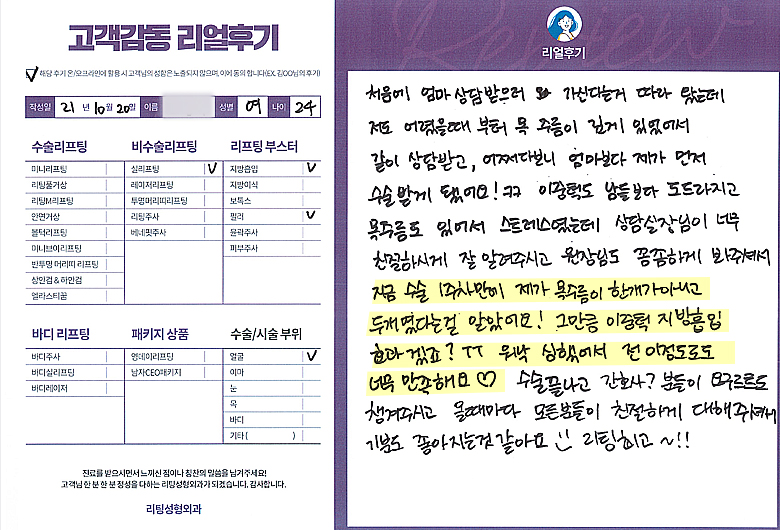 고객감동 리얼후기
해당 후기 온/오프라인에 활용 시 고객님의 성함은 노출되지 않으며, 이에 동의 합니다(EX. 김OO님의 후기)
작성일 21 년 10 월 20 일 이름 성별 여 나이 24
수술리프팅
미니리프팅
리팅풀거상
리팅M리프팅
안면거상
볼턱리프팅
미니브이리프팅
반투명 머리띠 리프팅
상안검 & 하안검
엘라스티꿈
비수술리프팅
실리프팅 V
레이저리프팅
투명머리띠리프팅
리팅주사
베네핏주사
리프팅 부스터
지방흡입 V
지방이식
보톡스
필러 V
윤곽주사
피부주사
바디 리프팅
바디주사
바디실리프팅
바디레이저
패키지 상품
영데이리프팅
남자CEO패키지
수술/시술 부위
얼굴 V
이마
눈
목
바디
기타 ( )
진료를 받으시면서 느끼신 점이나 칭찬의 말씀을 남겨주세요!
고객님 한 분 한 분 정성을 다하는 리팅성형외과가 되겠습니다. 감사합니다.
리팅성형외과
Review
리얼후기
처음에 엄마 상담받으러 가신다는거 따라 왔는데
저도 어렸을때 부터 목 주름이 깊게 있었어서
같이 상담받고, 어쩌다보니 엄마보다 제가 먼저
수술 받게 됐어요! ㅋㅋ 이중턱도 남들보다 도드라지고
목주름도 있어서 스트레스였는데 상담실장님이 너무
친절하시게 잘 알려주시고 원장님도 꼼꼼하게 봐주셔서
지금 수술 1주차만에 제가 목주름이 한개가 아니고
두개였다는걸 알았어요! 그만큼 이중턱 지방흡입
효과 겠죠? ㅜㅜ 워낙 심했어서 전 이정도로도
너무 만족해요 ♡ 수술끝나고 간호사? 분들이 요구르트도
챙겨주시고 올때마다 모든분들이 친절하게 대해주셔서
기분도 좋아지는것 같아요 :) 리팅 최고 ~!!